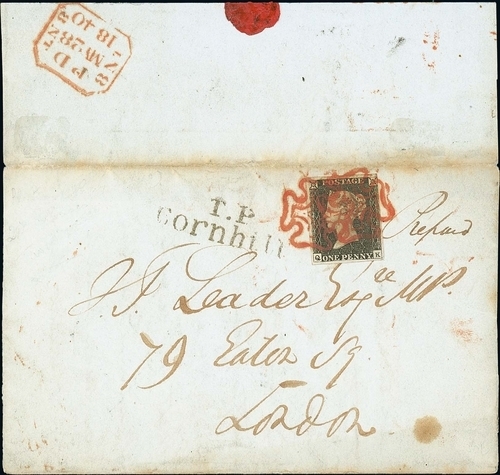 8 N 8
MY 28
1840
T.P
Cornhill
POSTAGE
ONE PENNY
Prepaid
J.T. Leader Esqre MP.
79 Eaton Sq.
London